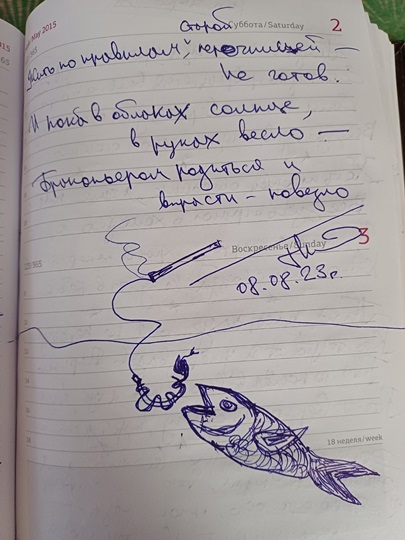 May 2015
Суббота/Saturday 2
Жить по правилам,
не готов.
И пока в облаках солнце,
в руках весло —
Браконьером родиться и
вырасти – повезло
Воскресенье/Sunday 3
08.08.23г.
18 неделя/week